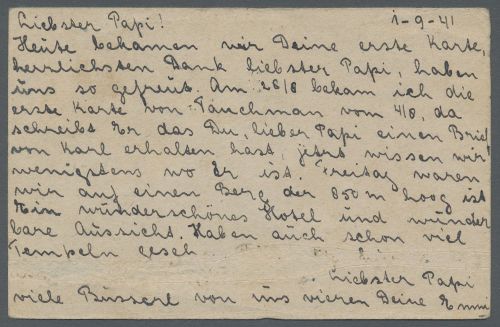 Liebster Papi! 1-9-41
Heute bekamen wir Deine erste Karte,
herzlichsten Dank liebster Papi, haben
uns so gefreut. Am 28/8 bekam ich die
erste Karte von Tauchman vom 4/8, da
schreibt Er das Du, lieber Papi einen Brief
von Karl erhalten hast, jetzt wissen wir
wenigstens wo Er ist. Freitag waren
wir auf einen Berg der 850 m hoog ist
Ein wunderschönes Hotel und wunder
bare Aussicht. Haben auch schon viel
Tempeln geseh
Liebster Papi
viele Busserl von uns vieren Deine Emmi